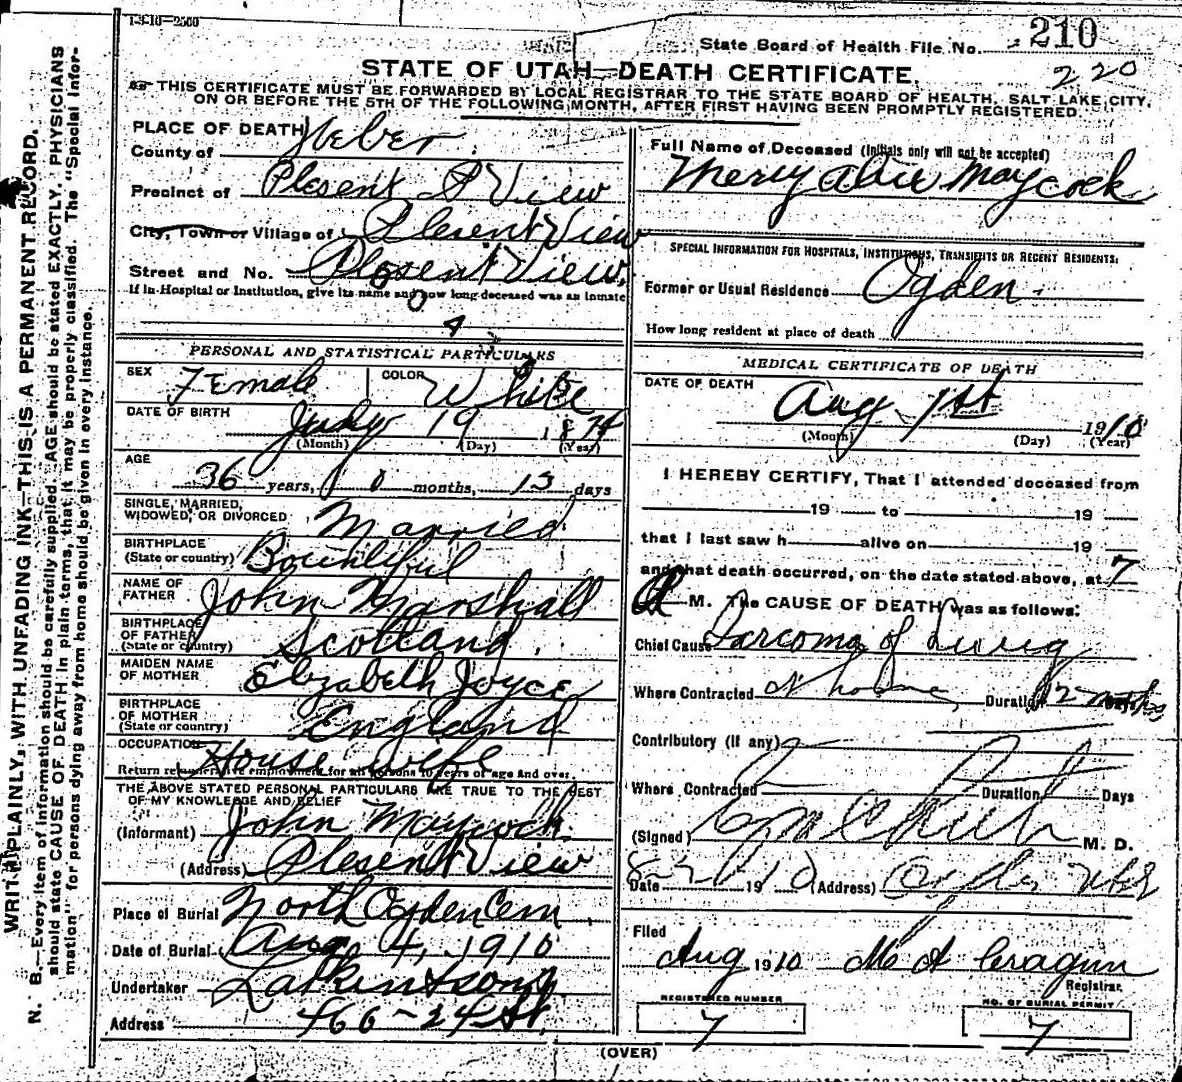 1-3-10-2500
State Board of Health File No. 210
220
STATE OF UTAH—DEATH CERTIFICATE.
THIS CERTIFICATE MUST BE FORWARDED BY LOCAL REGISTRAR TO THE STATE BOARD OF HEALTH, SALT LAKE CITY,
ON OR BEFORE THE 5TH OF THE FOLLOWING MONTH, AFTER FIRST HAVING BEEN PROMPTLY REGISTERED.
WRITE PLAINLY, WITH UNFADING INK—THIS IS A PERMANENT RECORD.
N. B.—Every item of information should be carefully supplied. AGE should be stated EXACTLY. PHYSICIANS
should state CAUSE OF DEATH in plain terms, that it may be properly classified. The "Special Infor-
mation" for persons dying away from home should be given in every instance.
PLACE OF DEATH
County of Weber
Precinct of Plesent View
City, Town or Village of Plesent View
Street and No. Plesent View
If in Hospital or Institution, give its name and how long deceased was an inmate
PERSONAL AND STATISTICAL PARTICULARS
SEX Female COLOR White
DATE OF BIRTH July 19 1874
(Month) (Day) (Year)
AGE
36 years, 0 months, 13 days
SINGLE, MARRIED,
WIDOWED, OR DIVORCED Married
BIRTHPLACE
(State or country) Bountiful
NAME OF
FATHER John Marshall
BIRTHPLACE
OF FATHER
(State or country) Scotland
MAIDEN NAME
OF MOTHER Elizabeth Joyce
BIRTHPLACE
OF MOTHER
(State or country) England
OCCUPATION House wife
Return remunerative employment for all persons 10 years of age and over.
THE ABOVE STATED PERSONAL PARTICULARS ARE TRUE TO THE BEST
OF MY KNOWLEDGE AND BELIEF
(Informant) John Maycock
(Address) Plesent View
Place of Burial North Ogden Cem
Date of Burial Aug 4, 1910
Undertaker Larkin & sons
Address 466-24 St.
Full Name of Deceased (Initials only will not be accepted)
Mercy Alice Maycock
SPECIAL INFORMATION FOR HOSPITALS, INSTITUTIONS, TRANSIENTS OR RECENT RESIDENTS:
Former or Usual Residence Ogden
How long resident at place of death
MEDICAL CERTIFICATE OF DEATH
DATE OF DEATH
Aug 1st 1910
(Month) (Day) (Year)
I HEREBY CERTIFY, That I attended deceased from
19 to 19
that I last saw h alive on 19
and that death occurred, on the date stated above, at 7
A M. The CAUSE OF DEATH was as follows:
Chief Cause Sarcoma of Lung
Where Contracted at home, Duration 12 months
Contributory (if any)
Where Contracted Duration Days
(Signed) M. D.
Date 8-2 1910 (Address) Ogden Utah
Filed
Aug 1910 M A Cragun
Registrar.
REGISTERED NUMBER
7
NO. OF BURIAL PERMIT
7
(OVER)